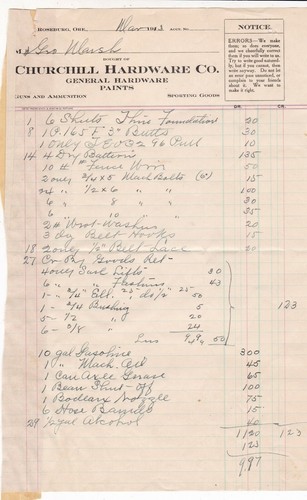 ROSEBURG, ORE. Mar 191 ACCT. NO.
NOTICE.
ERRORS—We make them; so does everyone, and we cheerfully correct them if you will write to us. Try to write good naturedly, but if you cannot, then write anyway. Do not let us ever pass unnoticed, or complain to your friends about it. We want to make it right.
M Geo Marsh
BOUGHT OF
CHURCHILL HARDWARE CO.
GENERAL HARDWARE
PAINTS
GUNS AND AMMUNITION SPORTING GOODS
DR. CR.
1 6 Shuts Thin Foundation 20
8 1 C. 165 E 3" Butts 30
1 Only 96 Pull 10
14 4 Dry Batteries 135
10 # Fence Wire 50
2 only 3/4 x 5 Mach Bolts (6") 15
24 " 1/2 x 6 " " 100
6 " 8 " " 30
6 " 10 " " 35
2 # Wrot Washers 20
3 dz Belt Hooks 15
18 2 only 1/2" Belt Lace 20
27 Cr By Goods Ret-
4 only Sash Lifts 30
6 " " 63
1 - 3/4" Ell. 50
1 - 3/4 Bushing 5
5 - 1/2 " 20
6 - 3/8 " 24
Less 50
123
10 gal Gasoline 300
1 " Mach. Oil 45
1 Can Axle Grease 65
1 Bean Shut-off 100
1 Bodeaux Nozzle 75
6 Hose 15
29 1/2 gal Alcohol 40
1120 123
123
9.97